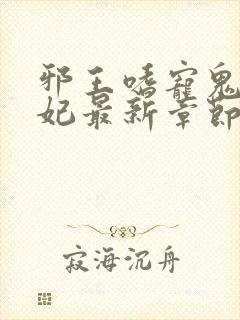 邪王嗜寵鬼
妃最新章節
寂海沉舟